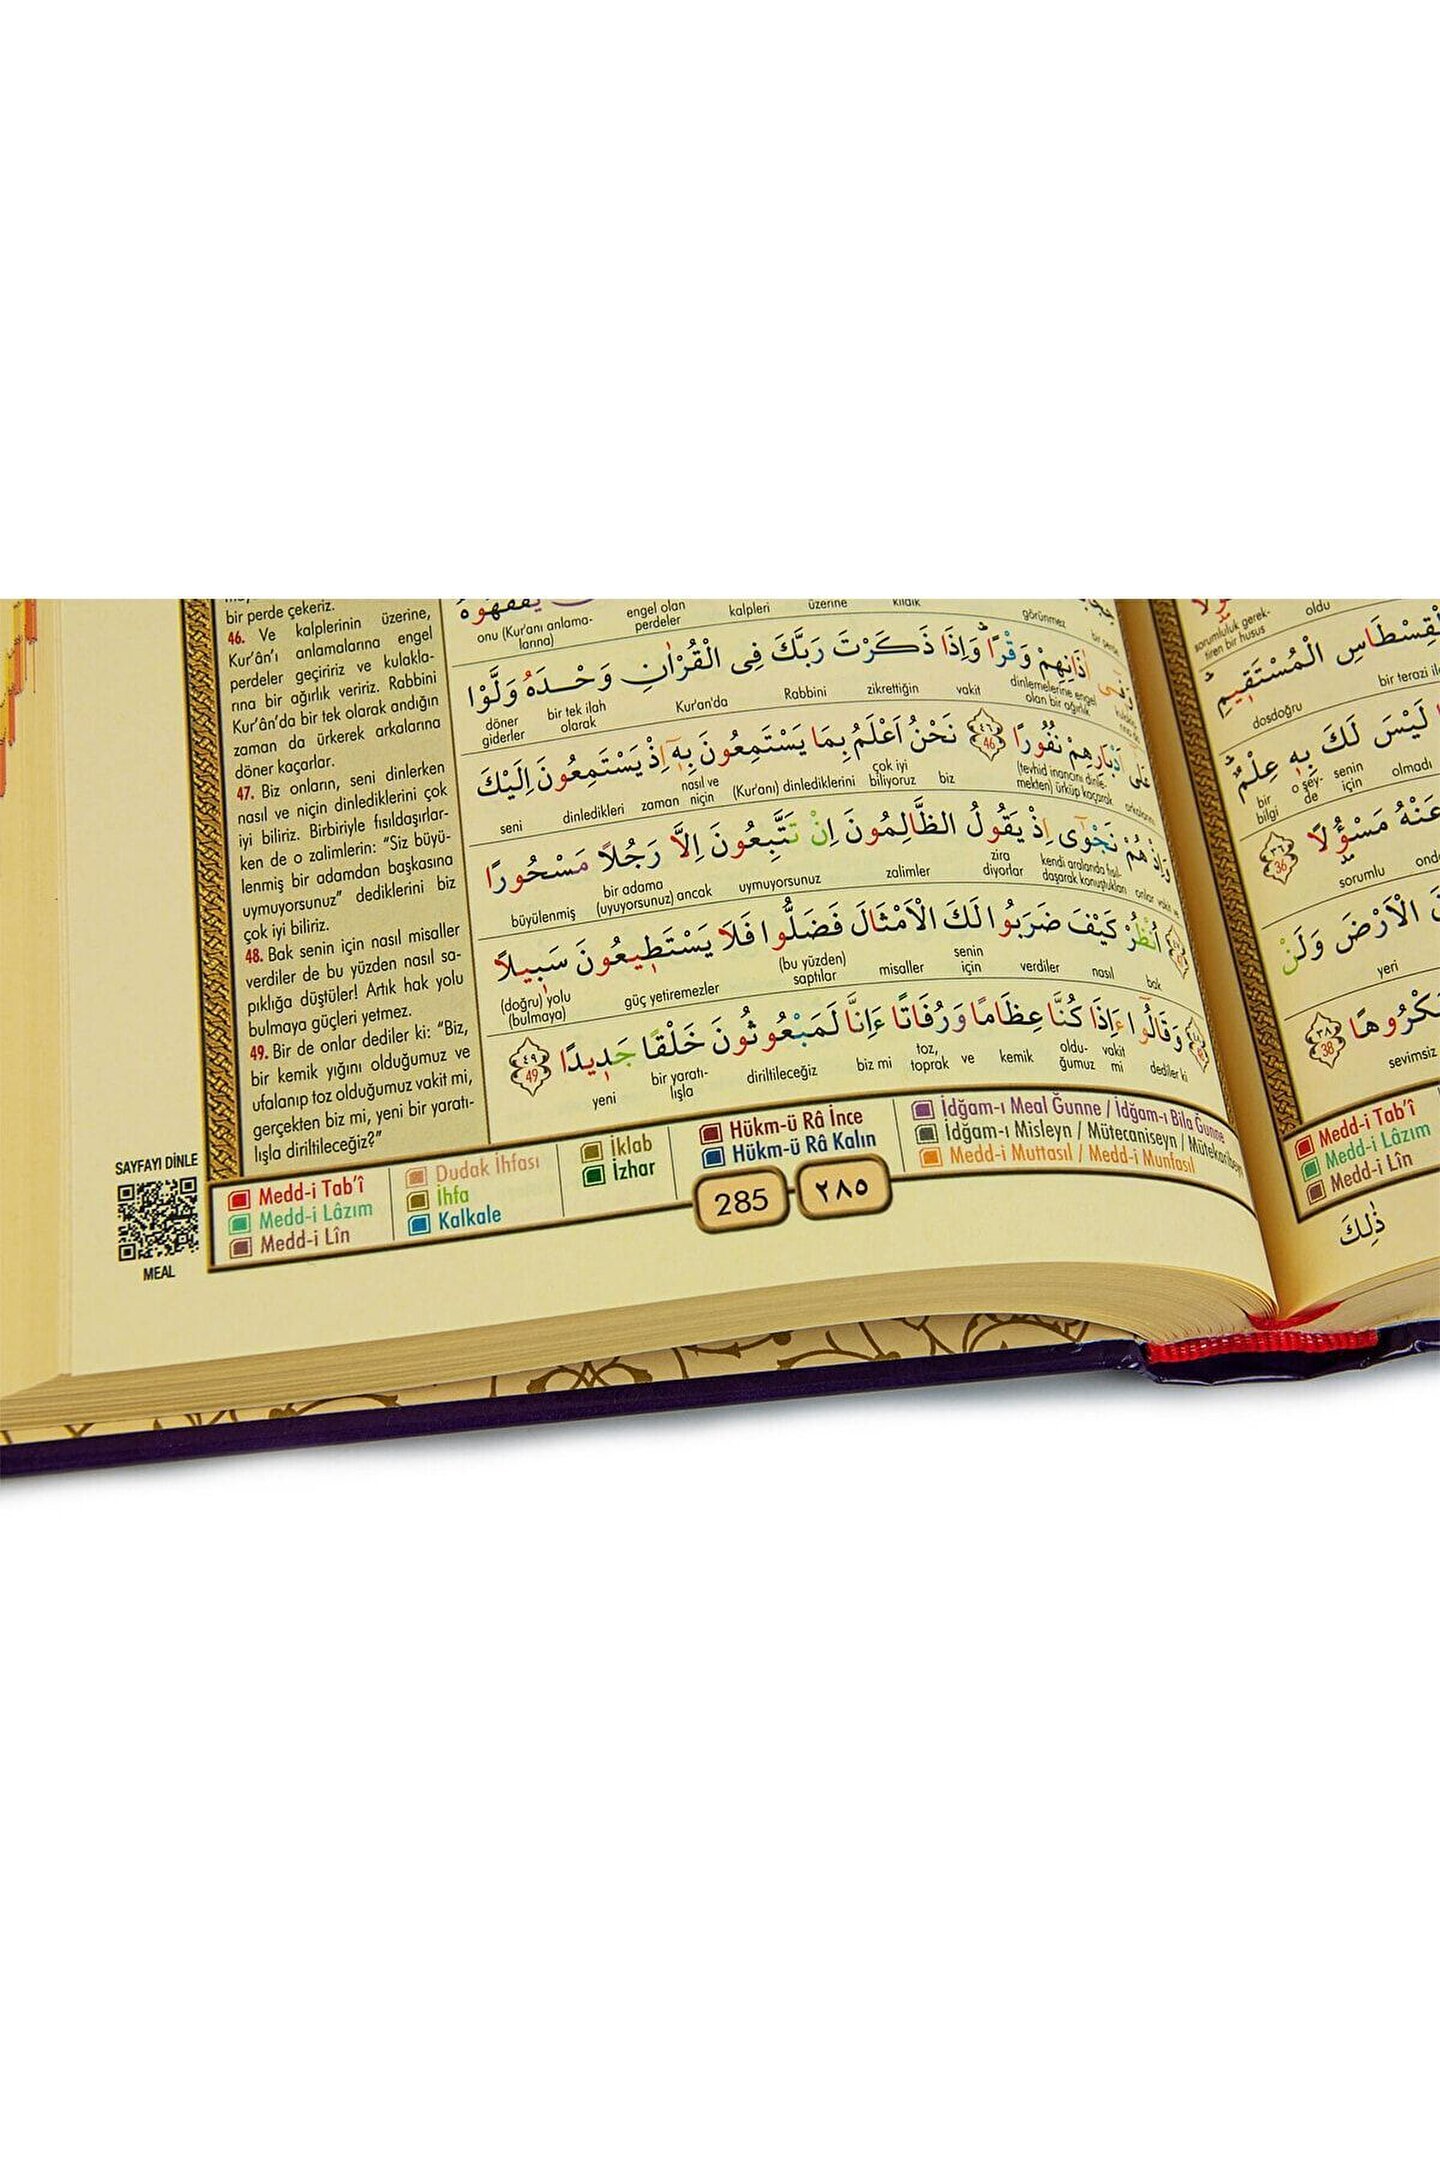 bir perde çekeriz.
46. Ve kalplerinin üzerine,
Kur'ân'ı anlamalarına engel
perdeler geçiririz ve kulakla-
rına bir ağırlık veririz. Rabbini
Kur'ân'da bir tek olarak andığın
zaman da ürkerek arkalarına
döner kaçarlar.
47. Biz onların, seni dinlerken
nasıl ve niçin dinlediklerini çok
iyi biliriz. Birbiriyle fısıldaşırlar-
ken de o zalimlerin: "Siz büyü-
lenmiş bir adamdan başkasına
uymuyorsunuz" dediklerini biz
çok iyi biliriz.
48. Bak senin için nasıl misaller
verdiler de bu yüzden nasıl sa-
pıklığa düştüler! Artık hak yolu
bulmaya güçleri yetmez.
49. Bir de onlar dediler ki: "Biz,
bir kemik yığını olduğumuz ve
ufalanıp toz olduğumuz vakit mi,
gerçekten biz mi, yeni bir yaratı-
lışla diriltileceğiz?"
يَفْقَهُوهُ
onu (Kur'anı anlama-larına) engel olan perdeler kalpleri üzerine kıldık görünmez bir perde
اٰذَانِهِمْ وَقْرًاۜ وَاِذَا ذَكَرْتَ رَبَّكَ فِي الْقُرْاٰنِ وَحْدَهُ وَلَّوْا
döner giderler bir tek ilah olarak Kur'an'da Rabbini zikrettiğin vakit dinlemelerine engel olan bir ağırlık
عَلٰٓى اَدْبَارِهِمْ نُفُورًا ٤٦ 46 نَحْنُ اَعْلَمُ بِمَا يَسْتَمِعُونَ بِهٖٓ اِذْ يَسْتَمِعُونَ اِلَيْكَ
seni dinledikleri zaman nasıl ve niçin (Kur'anı) dinlediklerini çok iyi biliyoruz biz (tevhid inancını dinle-mekten) ürküp kaçarak arkalarını
وَاِذْ هُمْ نَجْوٰٓى اِذْ يَقُولُ الظَّالِمُونَ اِنْ تَتَّبِعُونَ اِلَّا رَجُلًا مَسْحُورًا
büyülenmiş bir adama (uyuyorsunuz) ancak uymuyorsunuz zalimler zira diyorlar kendi aralarında fısıl-daşarak konuştukları onlar vakit ve
اُنْظُرْ كَيْفَ ضَرَبُوا لَكَ الْاَمْثَالَ فَضَلُّوا فَلَا يَسْتَطٖيعُونَ سَبٖيلًا
(doğru) yolu (bulmaya) güç yetiremezler (bu yüzden) saptılar misaller senin için verdiler nasıl bak
وَقَالُٓوا ءَاِذَا كُنَّا عِظَامًا وَرُفَاتًا ءَاِنَّا لَمَبْعُوثُونَ خَلْقًا جَدٖيدًا ٤٩ 49
yeni bir yaratı-lışla diriltileceğiz biz mi toz, toprak ve kemik oldu-ğumuz vakit mi dediler ki
SAYFAYI DİNLE
MEAL
Medd-i Tab'î
Medd-i Lâzım
Medd-i Lîn
Dudak İhfası
İhfa
Kalkale
İklab
İzhar
Hükm-ü Râ İnce
Hükm-ü Râ Kalın
İdğam-ı Meal Ğunne / İdğam-ı Bila Ğunne
İdğam-ı Misleyn / Mütecaniseyn / Mütekaribeyn
Medd-i Muttasıl / Medd-i Munfasıl
285 ٢٨٥
sorumluluk gerek-tiren bir husus oldu
الْمُسْتَقٖيمِۜ
dosdoğru bir terazi
لَيْسَ لَكَ بِهٖ عِلْمٌۜ
bir bilgi o şey-de senin için olmadı
عَنْهُ مَسْؤُ۫لًا ٣٦ 36
sorumlu
الْاَرْضَ وَلَنْ
yeri
٣٨ 38
sevimsiz
Medd-i Tab'î
Medd-i Lâzım
Medd-i Lîn
ذٰلِكَ